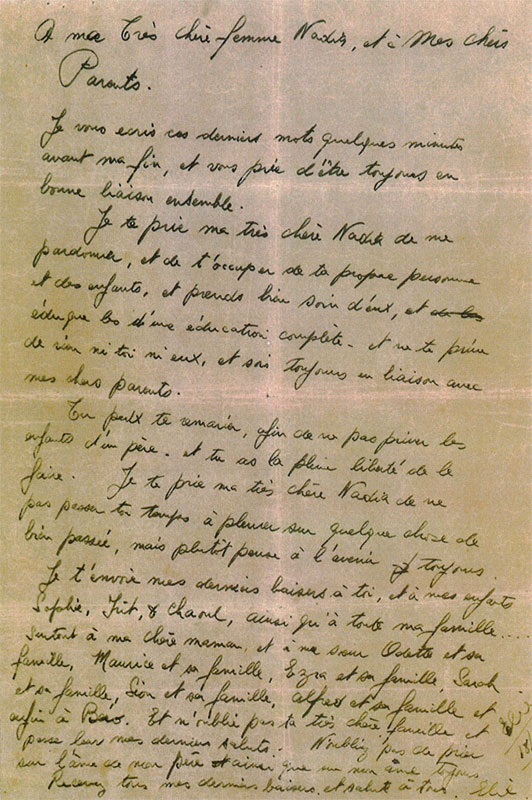 A ma Très chère femme Nadia, et à Mes chers
Parents.
Je vous écris ces derniers mots quelques minutes
avant ma fin, et vous prie d'être toujours en
bonne liaison ensemble.
Je te prie ma très chère Nadia de me
pardonner, et de t'occuper de ta propre personne
et des enfants, et prends bien soin d'eux, et de les
éduque les d'une éducation complète - et ne te prive
de rien ni toi ni eux, et sois toujours en liaison avec
mes chers parents.
Tu peux te remarier, afin de ne pas priver les
enfants d'un père. et tu as la pleine liberté de le
faire. Je te prie ma très chère Nadia de ne
pas passer ton temps à pleurer sur quelque chose de
bien passée, mais plutôt pense à l'avenir toujours.
Je t'envoie mes derniers baisers à toi, et à mes enfants
Sophie, Irit, & Chaoul, ainsi qu'à toute ma famille...
Surtout à ma chère maman, et à ma sœur Odette et sa
famille, Maurice et sa famille, Ezra et sa famille, Sarah
et sa famille, Sion et sa famille, Alfred et sa famille et
enfin à Et n'oublie pas ta très chère famille et
passe leur mes derniers saluts. N'oubliez pas de prier
sur l'âme de mon père et ainsi que sur mon âme toujours.
Recevez tous mes derniers baisers, et saluts à tous. Elie